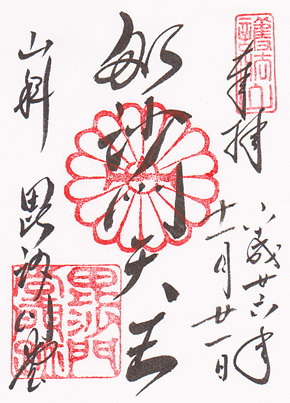 奉拝
平成廿六年
十一月廿一日
毘沙門天王
山科 毘沙門堂
毘沙門